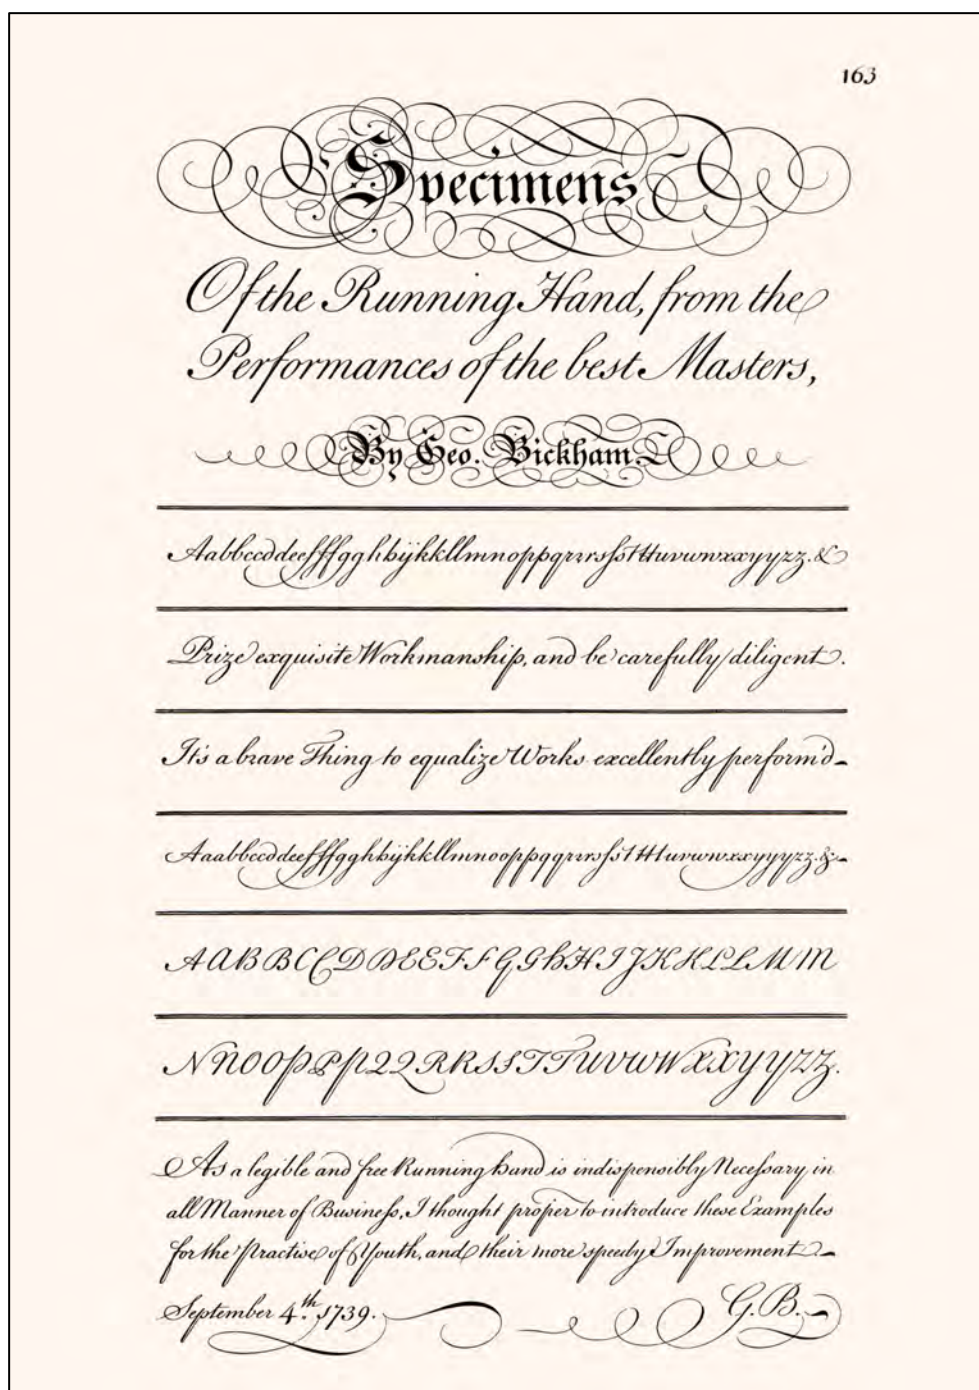 163
Specimens
Of the Running Hand, from the
Performances of the best Masters,
By Geo. Bickham.
Aabbccddeefffgghhijkkllmnoppqrrsſsttuvwwxxyyzz.&
Prize exquisite Workmanship, and be carefully diligent.
It's a brave Thing to equalize Works excellently perform'd
Aaabbccddeefffgghhijkkllmnooppqqrrsſstttuvwwxxyyyzz.&
AABBCCDDEEFFGGHHIJKKLLMM
NNOOPPPQQRRSSTTUVWWXXYYZZ.
As a legible and free Running hand is indispensibly Neceſsary in
all Manner of Buſineſs, I thought proper to introduce these Examples
for the Practise of Youth, and their more speedy Improvement
September 4.th 1739.
G.B.